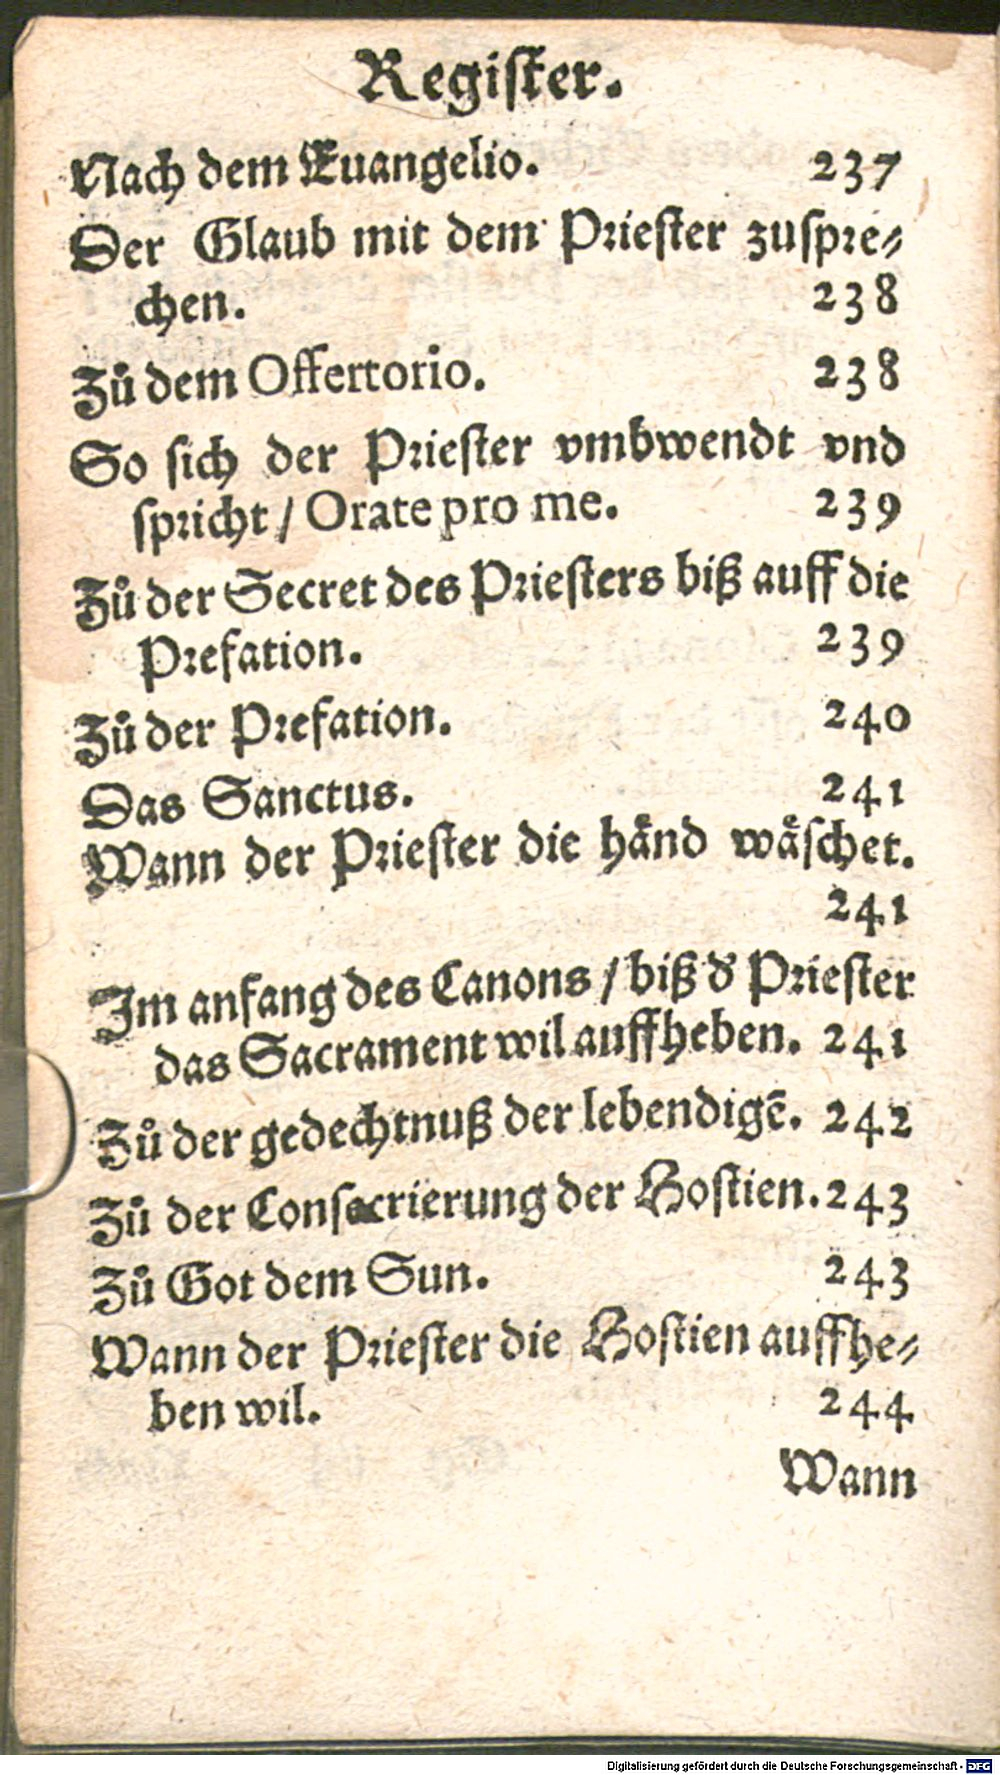 Regiſter.
Nach dem Euangelio. 237
Der Glaub mit dem Prieſter zuſpre⸗
chen. 238
Zů dem Offertorio. 238
So ſich der Prieſter vmbwendt vnd
ſpricht / Orate pro me. 239
Zů der Secret des Prieſters biß auff die
Prefation. 239
Zů der Prefation. 240
Das Sanctus. 241
Wann der Prieſter die haͤnd waͤſchet.
241
Im anfang des Canons / biß d' Prieſter
das Sacrament wil auffheben. 241
Zů der gedechtnuß der lebendigē. 242
Zů der Conſecrierung der Hoſtien. 243
Zů Got dem Sun. 243
Wann der Prieſter die Hoſtien auffhe⸗
ben wil. 244
Wann
Digitalisierung gefördert durch die Deutsche Forschungsgemeinschaft - DFG